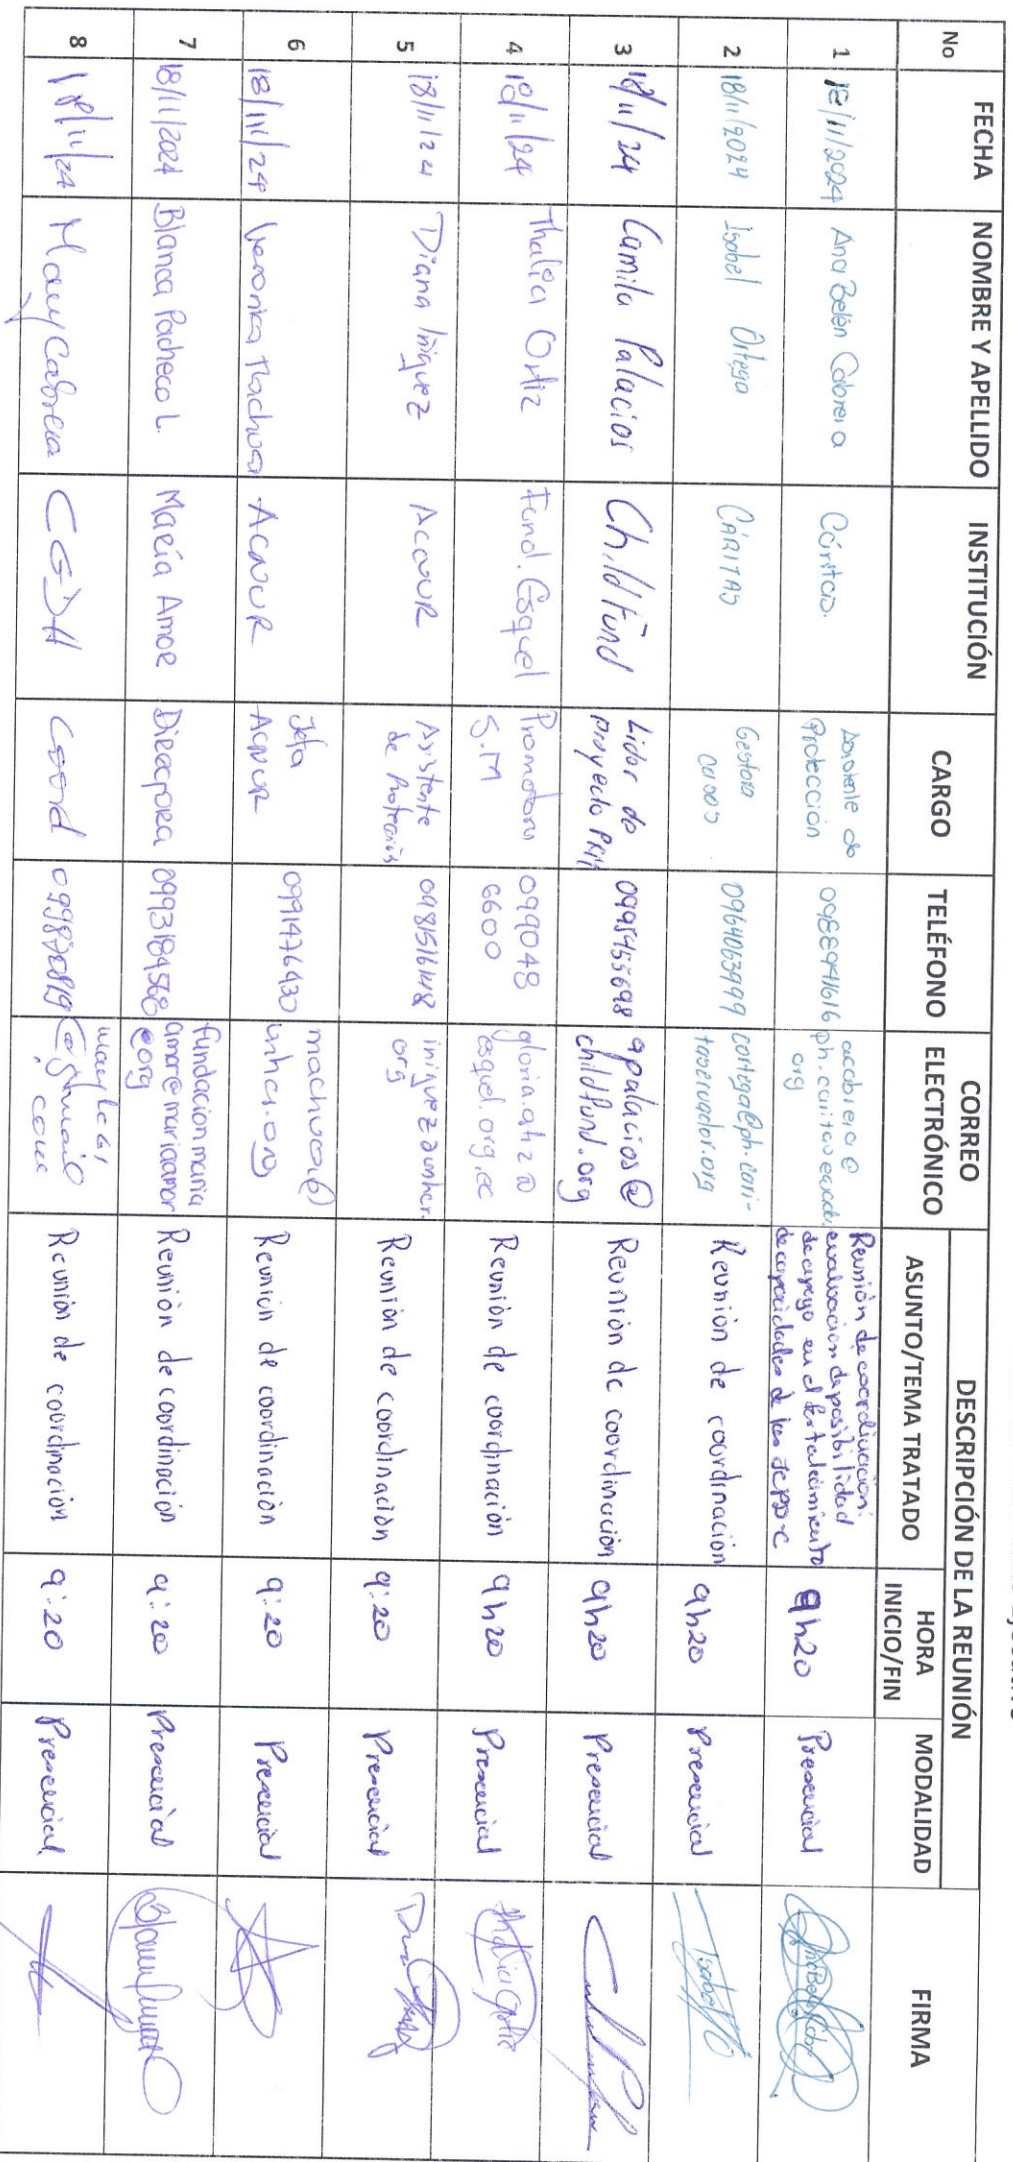 No FECHA NOMBRE Y APELLIDO INSTITUCIÓN CARGO TELÉFONO CORREO ELECTRÓNICO DESCRIPCIÓN DE LA REUNIÓN FIRMA
ASUNTO/TEMA TRATADO HORA INICIO/FIN MODALIDAD
1 18/11/2024 Ana Belén Cabrera Cáritas. de Protección
Reunión de coordinación: evaluación de posibilidad de apoyo en el fortalecimiento de capacidades de las 9h20 Presencial
2 18/11/2024 Isabel Ortega CÁRITAS Gestora casos 0964063999
Reunión de coordinación 9h20 Presencial
3 18/11/24 Camila Palacios ChildFund Lider de proyecto 0995455698 apalacios@ childfund.org
Reunión de coordinación 9h20 Presencial
4 18/11/24 Thalia Ortiz Fund. Esquel Promotora S.M 099048 6600 esquel.org.ec
Reunión de coordinación 9h20 Presencial
5 18/11/24 Diana Iñiguez ACNUR Asistente de Protección org
Reunión de coordinación 9:20 Presencial
6 18/11/24 Veronica Machuca ACNUR Jefa ACNUR 0991476430 unhcr.org
Reunión de coordinación 9:20 Presencial
7 18/11/2024 Blanca Pacheco L. María Amor Directora 0993184568 fundacionmaria amor@mariaamor
Reunión de coordinación 9:20 Presencial
8 18/11/24 Cabrera CGDH Coord
Reunión de coordinación 9:20 Presencial